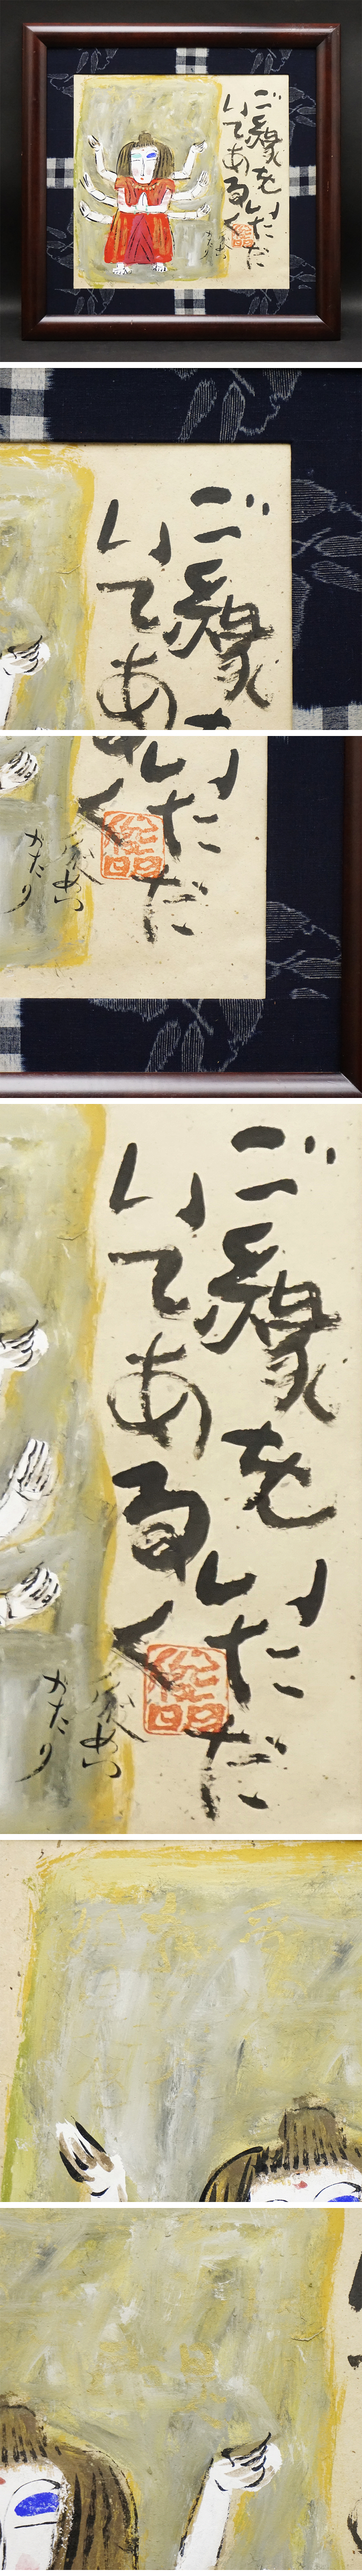 ご縁をいただ
いてあるく
かたり
ご縁
いてあ
いただ
く
かたり
ご縁をいただ
いてあるく
かたり